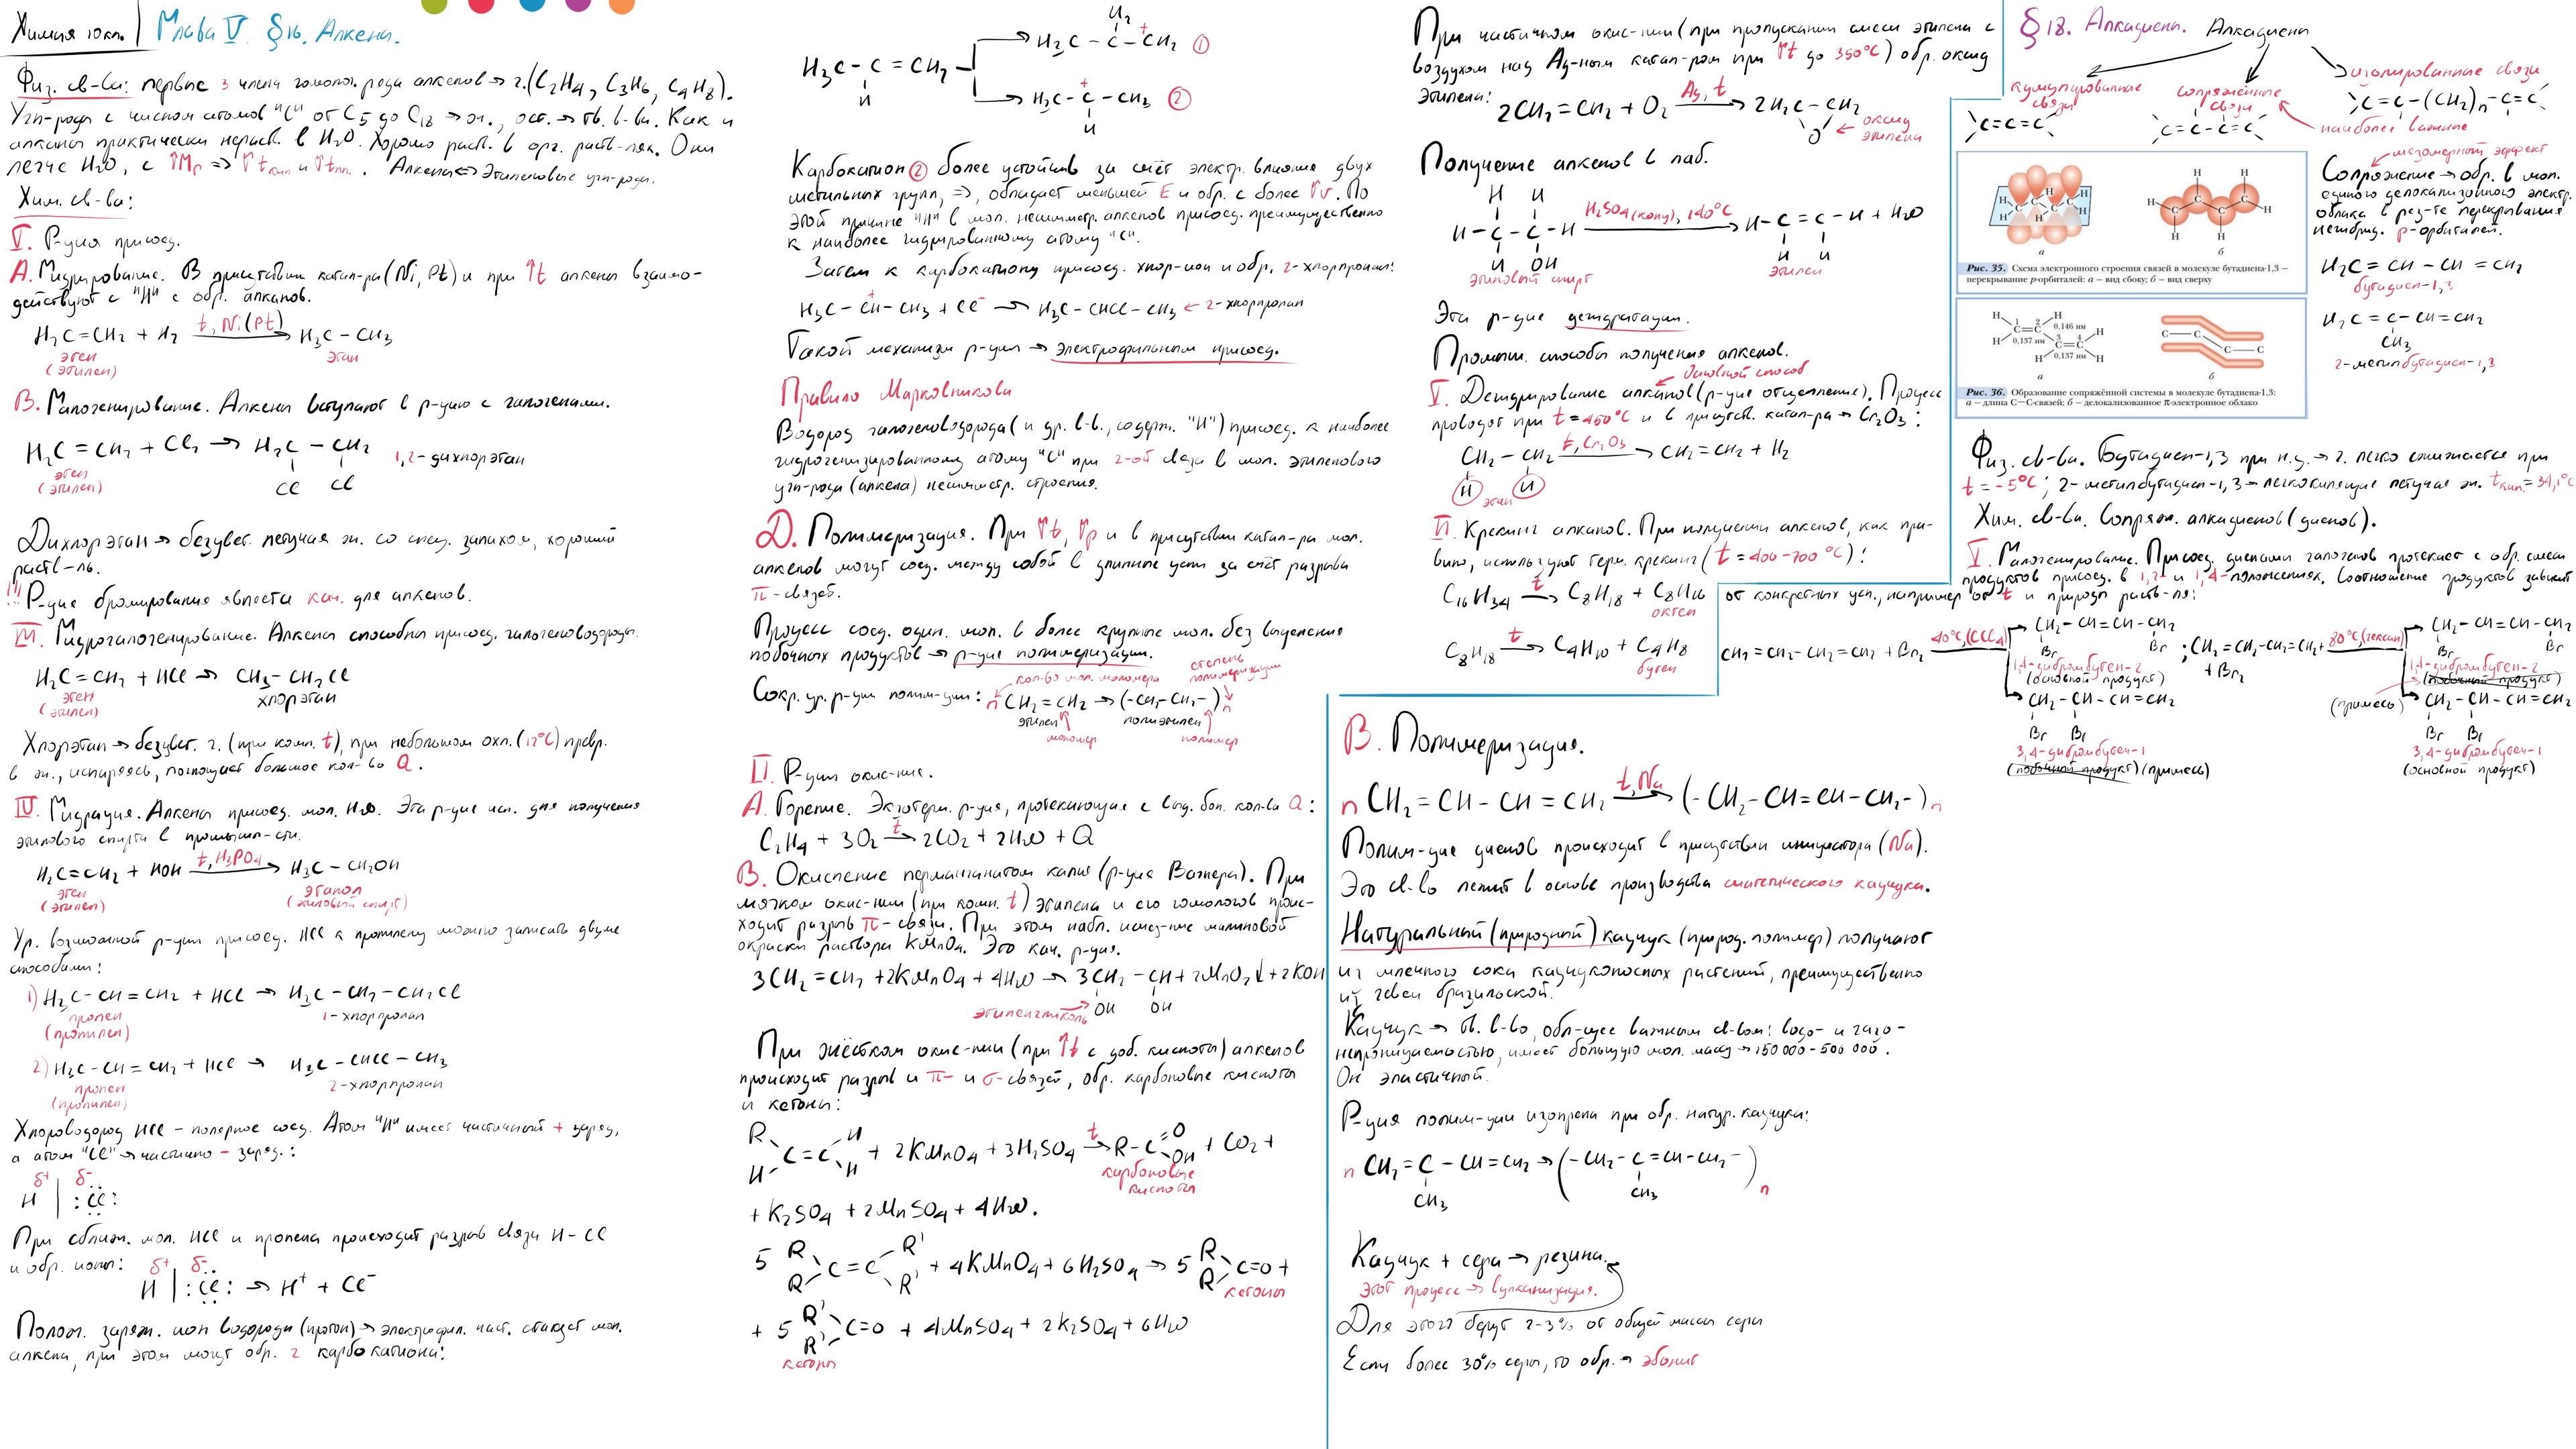 Химия 10 кл. Глава V. §16. Алкены.
Физ. св-ва: первые 3 члена гомолог. ряда алкенов → г. (C₂H₄, C₃H₆, C₄H₈).
Угл-роды с числом атомов "C" от C₅ до C₁₈ → ж., ост. → тв. в-ва. Как и
алканы практически нераств. в H₂O. Хорошо раств. в орг. раств-лях. Они
легче H₂O, с ↑Mr => ↑tкип и ↑tпл. Алкены <=> Этиленовые угл-роды.
Хим. св-ва:
I. Р-ция присоед.
А. Гидрирование. В присутствии катал-ра (Ni, Pt) и при ↑t алкены взаимо-
действуют с "H" с обр. алканов.
H₂C = CH₂ + H₂ t, Ni (Pt) → H₃C – CH₃
этен этан
(этилен)
В. Галогенирование. Алкены вступают в р-цию с галогенами.
H₂C = CH₂ + Cl₂ → H₂C – CH₂ 1,2-дихлорэтан
этен
(этилен) Cl Cl
Дихлорэтан → безцвет. летучая ж. со спец. запахом, хороший
раств-ль.
!!! Р-ция бромирования является кач. для алкенов.
III. Гидрогалогенирование. Алкены способны присоед. галогеноводороды.
H₂C = CH₂ + HCl → CH₃ – CH₂Cl
этен хлорэтан
(этилен)
Хлорэтан → безцвет. г. (при комн. t), при небольшом охл. (12°C) превр.
в ж., испаряясь, поглощает большое кол-во Q.
IV. Гидрация. Алкены присоед. мол. H₂O. Эта р-ция исп. для получения
этилового спирта в промышл-сти.
H₂C = CH₂ + HOH t, H₃PO₄ → H₃C – CH₂OH
этен этанол
(этилен) (этиловый спирт)
Ур. возможной р-ции присоед. HCl к пропилену можно записать двумя
способами:
1) H₃C – CH = CH₂ + HCl → H₃C – CH₂ – CH₂Cl
пропен 1-хлорпропан
(пропилен)
2) H₃C – CH = CH₂ + HCl → H₃C – CHCl – CH₃
пропен 2-хлорпропан
(пропилен)
Хлороводород HCl – полярное соед. Атом "H" имеет частичный + заряд,
а атом "Cl" → частично – заряд.:
δ+ δ-
H | :Cl:
При сближ. мол. HCl и пропена происходит разрыв связи H – Cl
и обр. ионы: δ+ δ-
H | :Cl: → H⁺ + Cl⁻
Полож. заряж. ион водорода (протон) → электрофил. част. атакует мол.
алкена, при этом могут обр. 2 карбокатиона:
H₂
H₃C – C – CH₂ ① +
H₃C – C = CH₂
H
H₃C – C – CH₃ ② +
H
Карбокатион ② более устойчив за счёт электр. влияния двух
метильных групп, =>, обладает меньшей E и обр. с более ↑v. По
этой причине "H" в мол. несимметр. алкенов присоед. преимущественно
к наиболее гидрированному атому "C".
Затем к карбокатиону присоед. хлор-ион и обр. 2-хлорпропан:
H₃C – CH⁺ – CH₃ + Cl⁻ → H₃C – CHCl – CH₃ ← 2-хлорпропан
Такой механизм р-ции → электрофильным присоед.
Правило Марковникова
Водород галогеноводорода (и др. в-в., содерж. "H") присоед. к наиболее
гидрогенизированному атому "C" при 2-ой связи в мол. этиленового
угл-рода (алкена) несимметр. строения.
Д. Полимеризация. При ↑t, ↑p и в присутствии катал-ра мол.
алкенов могут соед. между собой в длинные цепи за счёт разрыва
π-связей.
Процесс соед. один. мол. в более крупные мол. без выделения
побочных продуктов → р-ция полимеризации.
кол-во мол. мономера степень полимеризации
Сокр. ур. р-ции полим-ции: n CH₂ = CH₂ → (-CH₂-CH₂-)n
этилен полиэтилен
мономер полимер
II. Р-ции окис-ния.
А. Горение. Экзотерм. р-ция, протекающая с выд. бол. кол-ва Q:
C₂H₄ + 3O₂ t → 2CO₂ + 2H₂O + Q
В. Окисление перманганатом калия (р-ция Вагнера). При
мягком окис-нии (при комн. t) этилена и его гомологов проис-
ходит разрыв π-связи. При этом набл. исчез-ние малиновой
окраски раствора KMnO₄. Это кач. р-ция.
3CH₂ = CH₂ + 2KMnO₄ + 4H₂O → 3CH₂ – CH + 2MnO₂↓ + 2KOH
этиленгликоль → OH OH
При жёстком окис-нии (при ↑t с доб. кислоты) алкенов
происходит разрыв и π- и σ-связей, обр. карбоновые кислоты
и кетоны:
R H
C = C + 2KMnO₄ + 3H₂SO₄ t → R – C =O OH + CO₂ +
H H карбоновые
кислоты
+ K₂SO₄ + 2MnSO₄ + 4H₂O.
5 R R C = C R' R' + 4KMnO₄ + 6H₂SO₄ → 5 R R C=O +
кетоны
+ 5 R' R' C=O + 4MnSO₄ + 2K₂SO₄ + 6H₂O
кетоны
При частичном окис-нии (при пропускании смеси этилена с
воздухом над Ag-ным катал-ром при ↑t до 350°C) обр. оксид
этилена:
2CH₂ = CH₂ + O₂ Ag, t → 2H₂C – CH₂
O ← оксид
этилена
Получение алкенов в лаб.
H H
H – C – C – H H₂SO₄(конц), 140°C → H – C = C – H + H₂O
H OH H H
этиловый спирт этилен
Эта р-ция дегидратации.
Промыш. способы получения алкенов.
Основной способ
I. Дегидрирование алканов (р-ция отщепления). Процесс
проводят при t = 450°C и в присутств. катал-ра → Cr₂O₃:
CH₂ – CH₂ t, Cr₂O₃ → CH₂ = CH₂ + H₂
H этан H
II. Крекинг алканов. При получении алкенов, как пра-
вило, используют терм. крекинг (t = 400-700 °C):
C₁₆H₃₄ t → C₈H₁₈ + C₈H₁₆
октен
C₈H₁₈ t → C₄H₁₀ + C₄H₈
бутен
§18. Алкадиены. Алкадиены
кумулированные
связи
C=C=C
сопряжённые
связи
C=C-C=C
изолированные связи
C=C-(CH₂)n-C=C
наиболее важные
мезомерный эффект
Сопряжение → обр. в мол.
единого делокализ​ованного электр.
облака в рез-те перекрывания
негибрид. p-орбиталей.
H H H H H H C C C C
а б
Рис. 35. Схема электронного строения связей в молекуле бутадиена-1,3 –
перекрывание p-орбиталей: а – вид сбоку; б – вид сверху
H₂C = CH – CH = CH₂
бутадиен-1,3
H₂C = C – CH = CH₂
CH₃
2-метилбутадиен-1,3
H 1 2 H
C=C 0,146 нм H
H 0,137 нм 3 4
C=C
H 0,137 нм H
C — C
C — C
а б
Рис. 36. Образование сопряжённой системы в молекуле бутадиена-1,3:
а – длина С–С-связей; б – делокализованное π-электронное облако
Физ. св-ва. Бутадиен-1,3 при н.у. → г. легко сжижается при
t = -5°C; 2-метилбутадиен-1,3 → легкокипящая летучая ж. tкип. = 34,1°C
Хим. св-ва. Сопряж. алкадиенов (диенов).
I. Галогенирование. Присоед. диенами галогенов протекает с обр. смеси
продуктов присоед. в 1,2- и 1,4-положениях. Соотношение продуктов зависит
от конкретных усл., например от t и природы раств-ля:
CH₂ = CH₂ – CH₂ = CH₂ + Br₂ 40°C, (CCl₄)
CH₂ – CH = CH – CH₂
Br Br
1,4-дибромбутен-2
(основной продукт)
CH₂ – CH – CH = CH₂
Br Br
3,4-дибромбутен-1
(побочный продукт) (примесь)
; CH₂ = CH₂ – CH₂ = CH₂ + 80°C, (гексан)
+ Br₂
CH₂ – CH = CH – CH₂
Br Br
1,4-дибромбутен-2
(побочный продукт)
(примесь)
CH₂ – CH – CH = CH₂
Br Br
3,4-дибромбутен-1
(основной продукт)
В. Полимеризация.
n CH₂ = CH – CH = CH₂ t, Na → (-CH₂-CH=CH-CH₂-)n
Полим-ция диенов происходит в присутствии инициатора (Na).
Это св-во лежит в основе производства синтетического каучука.
Натуральный (природный) каучук (природ. полимер) получают
из млечного сока каучуконосных растений, преимущественно
из гевеи бразильской.
Каучук → тв. в-во, обл-щее важным св-вом: водо- и газо-
непроницаемостью, имеет большую мол. массу → 150 000 - 500 000.
Он эластичный.
Р-ция полим-ции изопрена при обр. натур. каучука:
n CH₂ = C – CH = CH₂ → (-CH₂ – C = CH – CH₂-)n
CH₃ CH₃
Каучук + сера → резина.
Этот процесс → вулканизация.
Для этого берут 2-3% от общей массы серы
Если более 30% серы, то обр. → эбонит